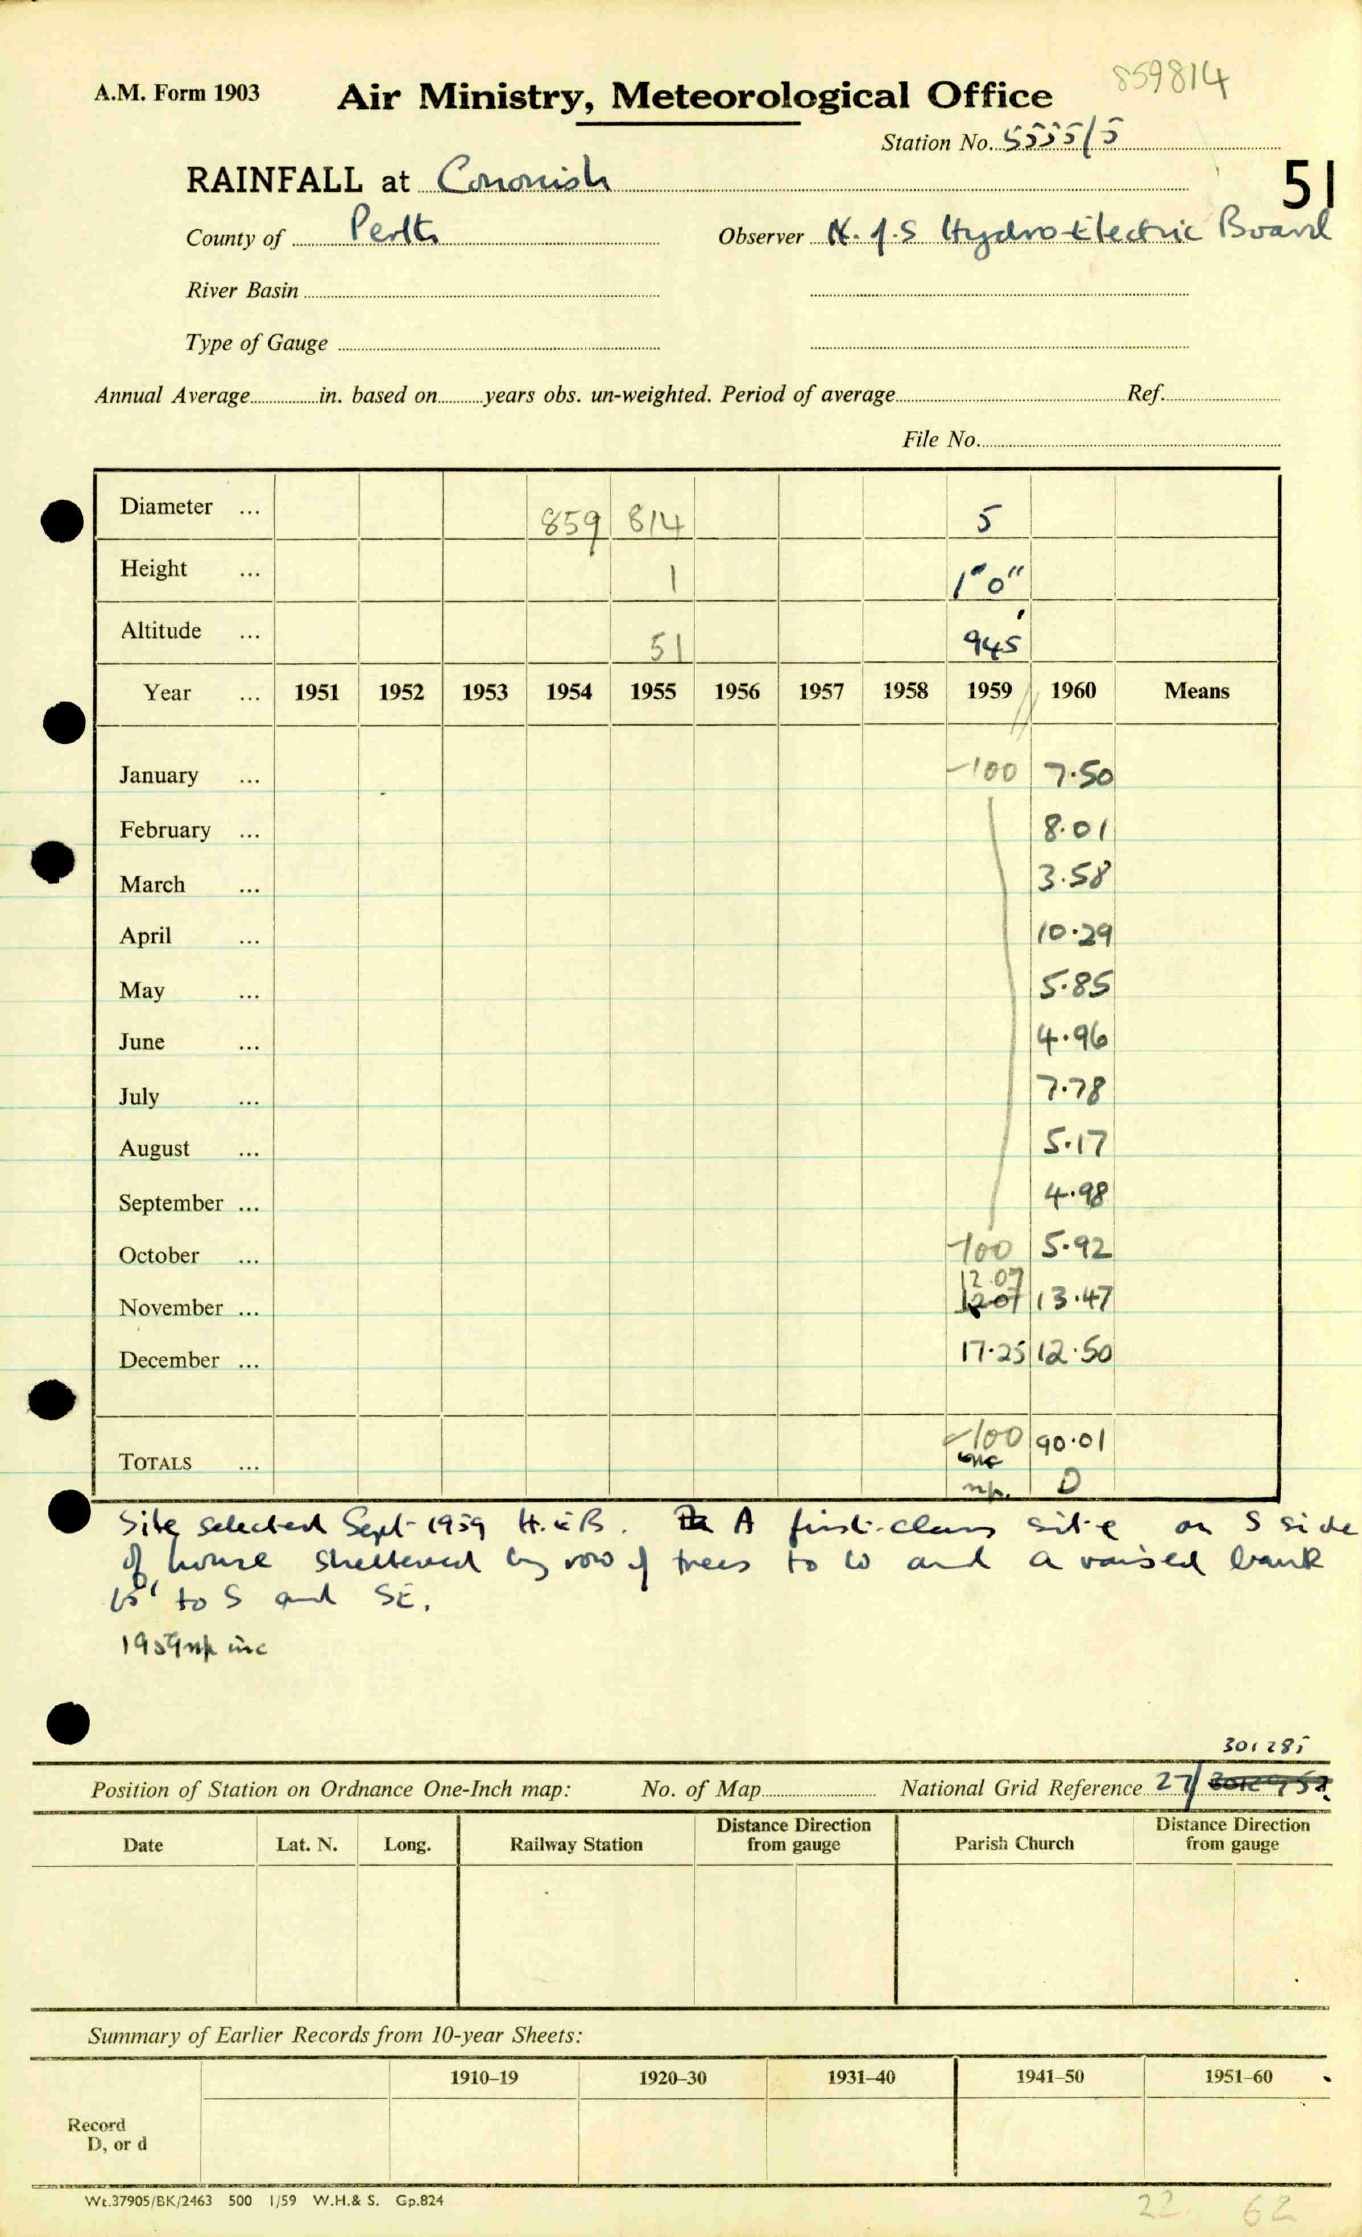 859814
A.M. Form 1903 Air Ministry, Meteorological Office
Station No. 5555/5
RAINFALL at Cononish 51
County of Perth Observer N. of S Hydro-Electric Board
River Basin
Type of Gauge
Annual Average in. based on years obs. un-weighted. Period of average Ref.
File No.
Diameter ... 859 814 5
Height ... 1 1' 0"
Altitude ... 51 945'
Year ... 1951 1952 1953 1954 1955 1956 1957 1958 1959 1960 Means
January ... -100 7.50
February ... 8.01
March ... 3.58
April ... 10.29
May ... 5.85
June ... 4.96
July ... 7.78
August ... 5.17
September ... 4.98
October ... -100 5.92
12.07
November ... 1207 13.47
December ... 17.25 12.50
TOTALS ... -100 90.01
inc
np. D
Site selected Sept 1959 H.E.B. A first-class site on S side
of house sheltered by row of trees to W and a raised bank
15' to S and SE.
1959 np inc
301285
Position of Station on Ordnance One-Inch map: No. of Map National Grid Reference 27/
Date Lat. N. Long. Railway Station Distance Direction from gauge Parish Church Distance Direction from gauge
Summary of Earlier Records from 10-year Sheets:
1910–19 1920–30 1931–40 1941–50 1951–60
Record
D, or d
Wt.37905/BK/2463 500 1/59 W.H.& S. Gp.824
22 62